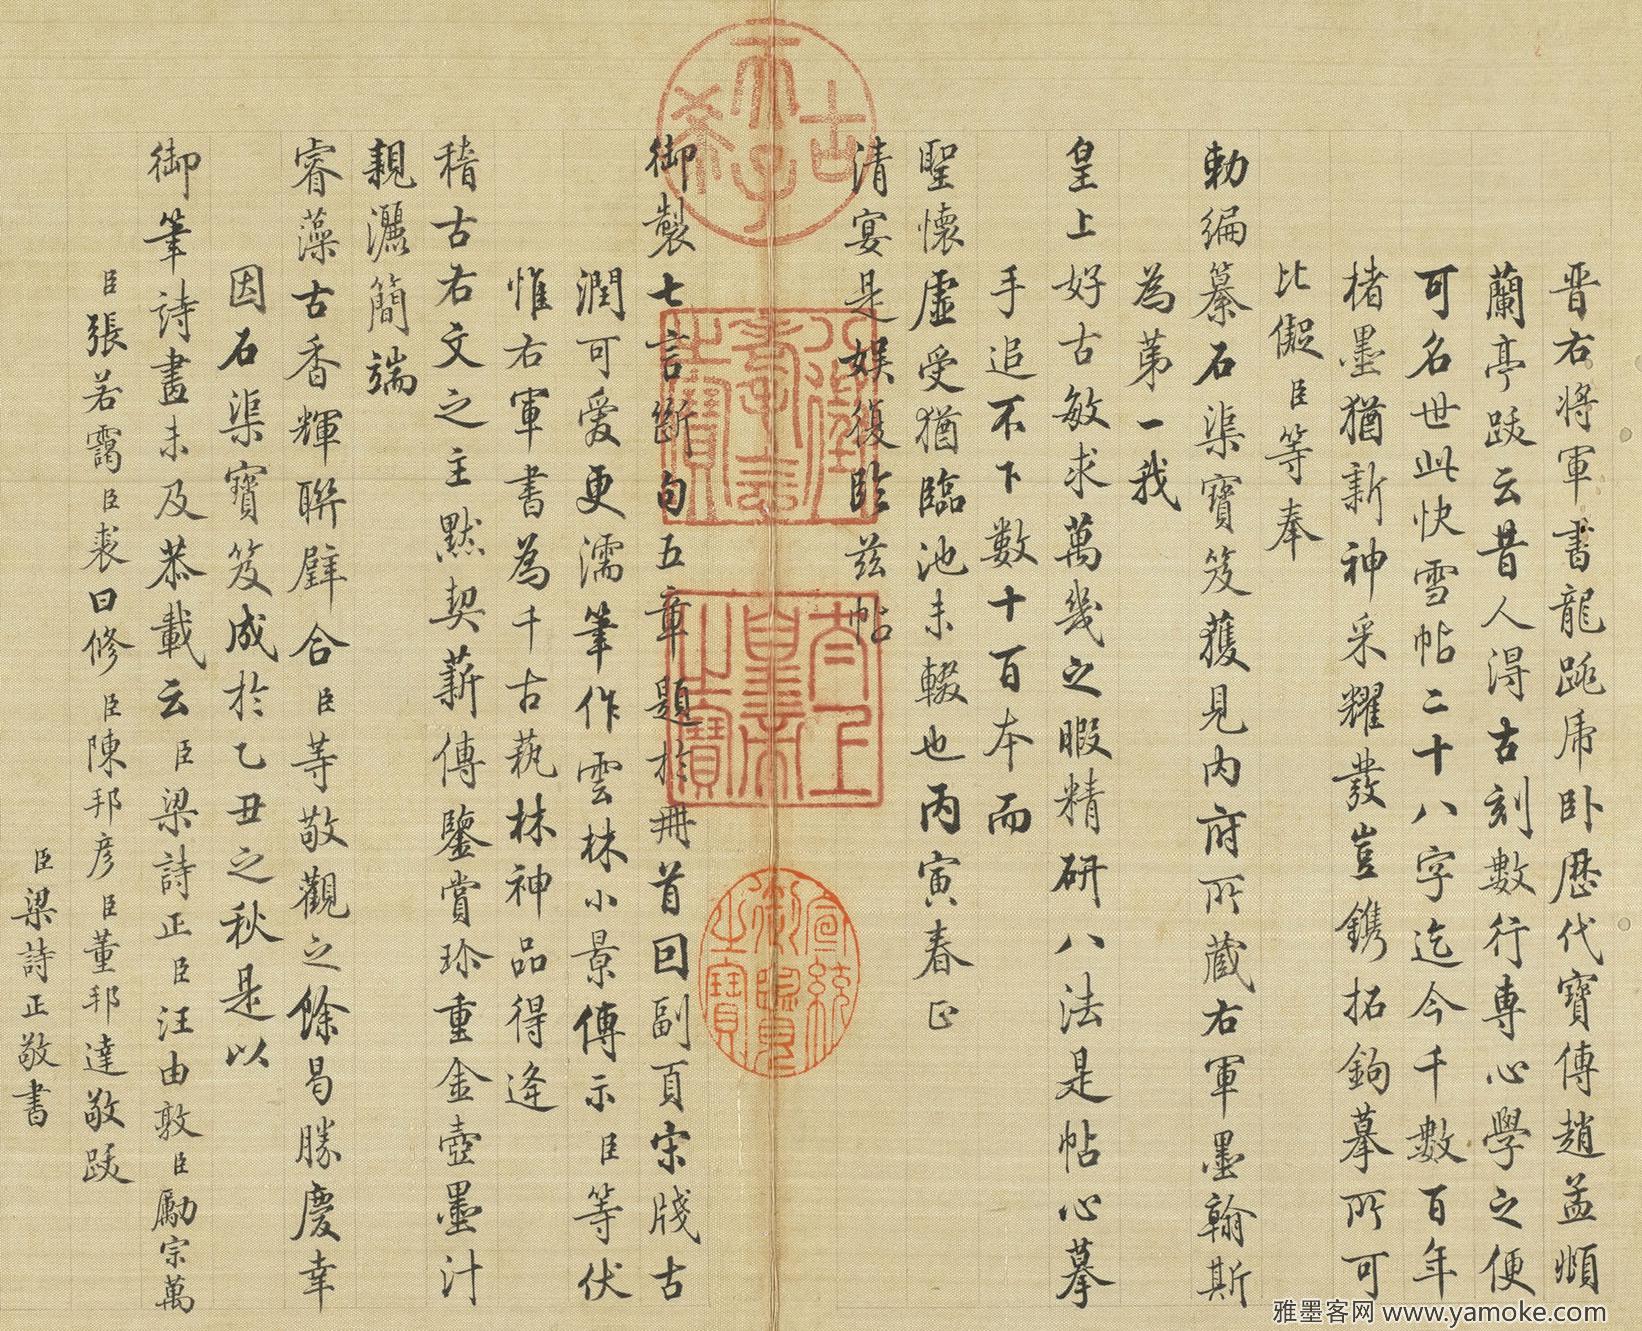 晋右將軍書龍跳虎卧歷代寶傳趙孟頫
蘭亭跋云昔人得古刻數行專心學之便
可名世此快雪帖二十八字迄今千數百年
楮墨猶新神采耀發豈鐫拓鉤摹所可
比儗臣等奉
勅編纂石渠寶笈獲見内府所藏右軍墨翰斯
為第一我
皇上好古敏求萬幾之暇精研八法是帖心摹
手追不下數十百本而
聖懷虛受猶臨池未輟也丙寅春正
清宴是娱復臨茲帖
御製七言斷句五章題於冊首回副頁宋牋古
潤可愛更濡筆作雲林小景傳示臣等伏
惟右軍書為千古蓺林神品得逢
稽古右文之主默契薪傳鑒賞珍重金壺墨汁
親灑簡端
睿藻古香輝聯璧合臣等敬觀之餘曷勝慶幸
因石渠寶笈成於乙丑之秋是以
御筆詩畫未及恭載云臣梁詩正臣汪由敦臣勵宗萬
臣張若靄臣裘曰修臣陳邦彦臣董邦達敬跋
臣梁詩正敬書
古希天子
八徵耄念之寶
太上皇帝之寶
宣統御覽之寶
雅墨客网 www.yamoke.com